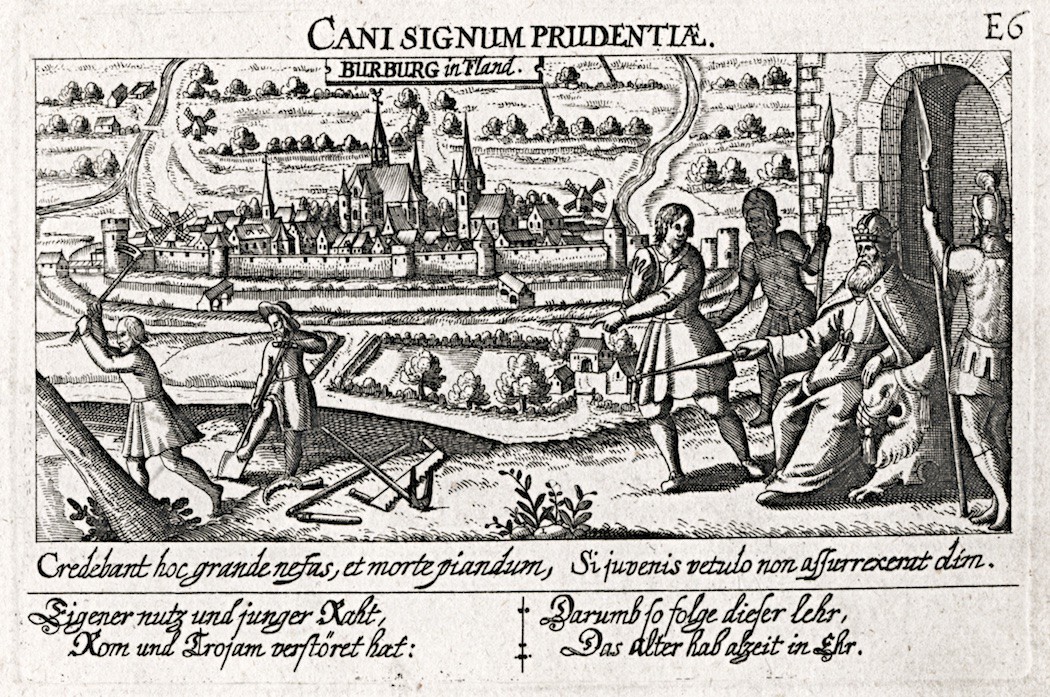 CANI SIGNUM PRUDENTIÆ.
E6
BURBURG in Fland.
Credebant hoc grande nefas, et morte piandum, Si juvenis vetulo non assurrexerat olim.
Eigener nutz und junger Raht,
Rom und Trojam verstöret hat:
Darumb so folge dieser lehr,
Das Alter hab alzeit in Ehr.